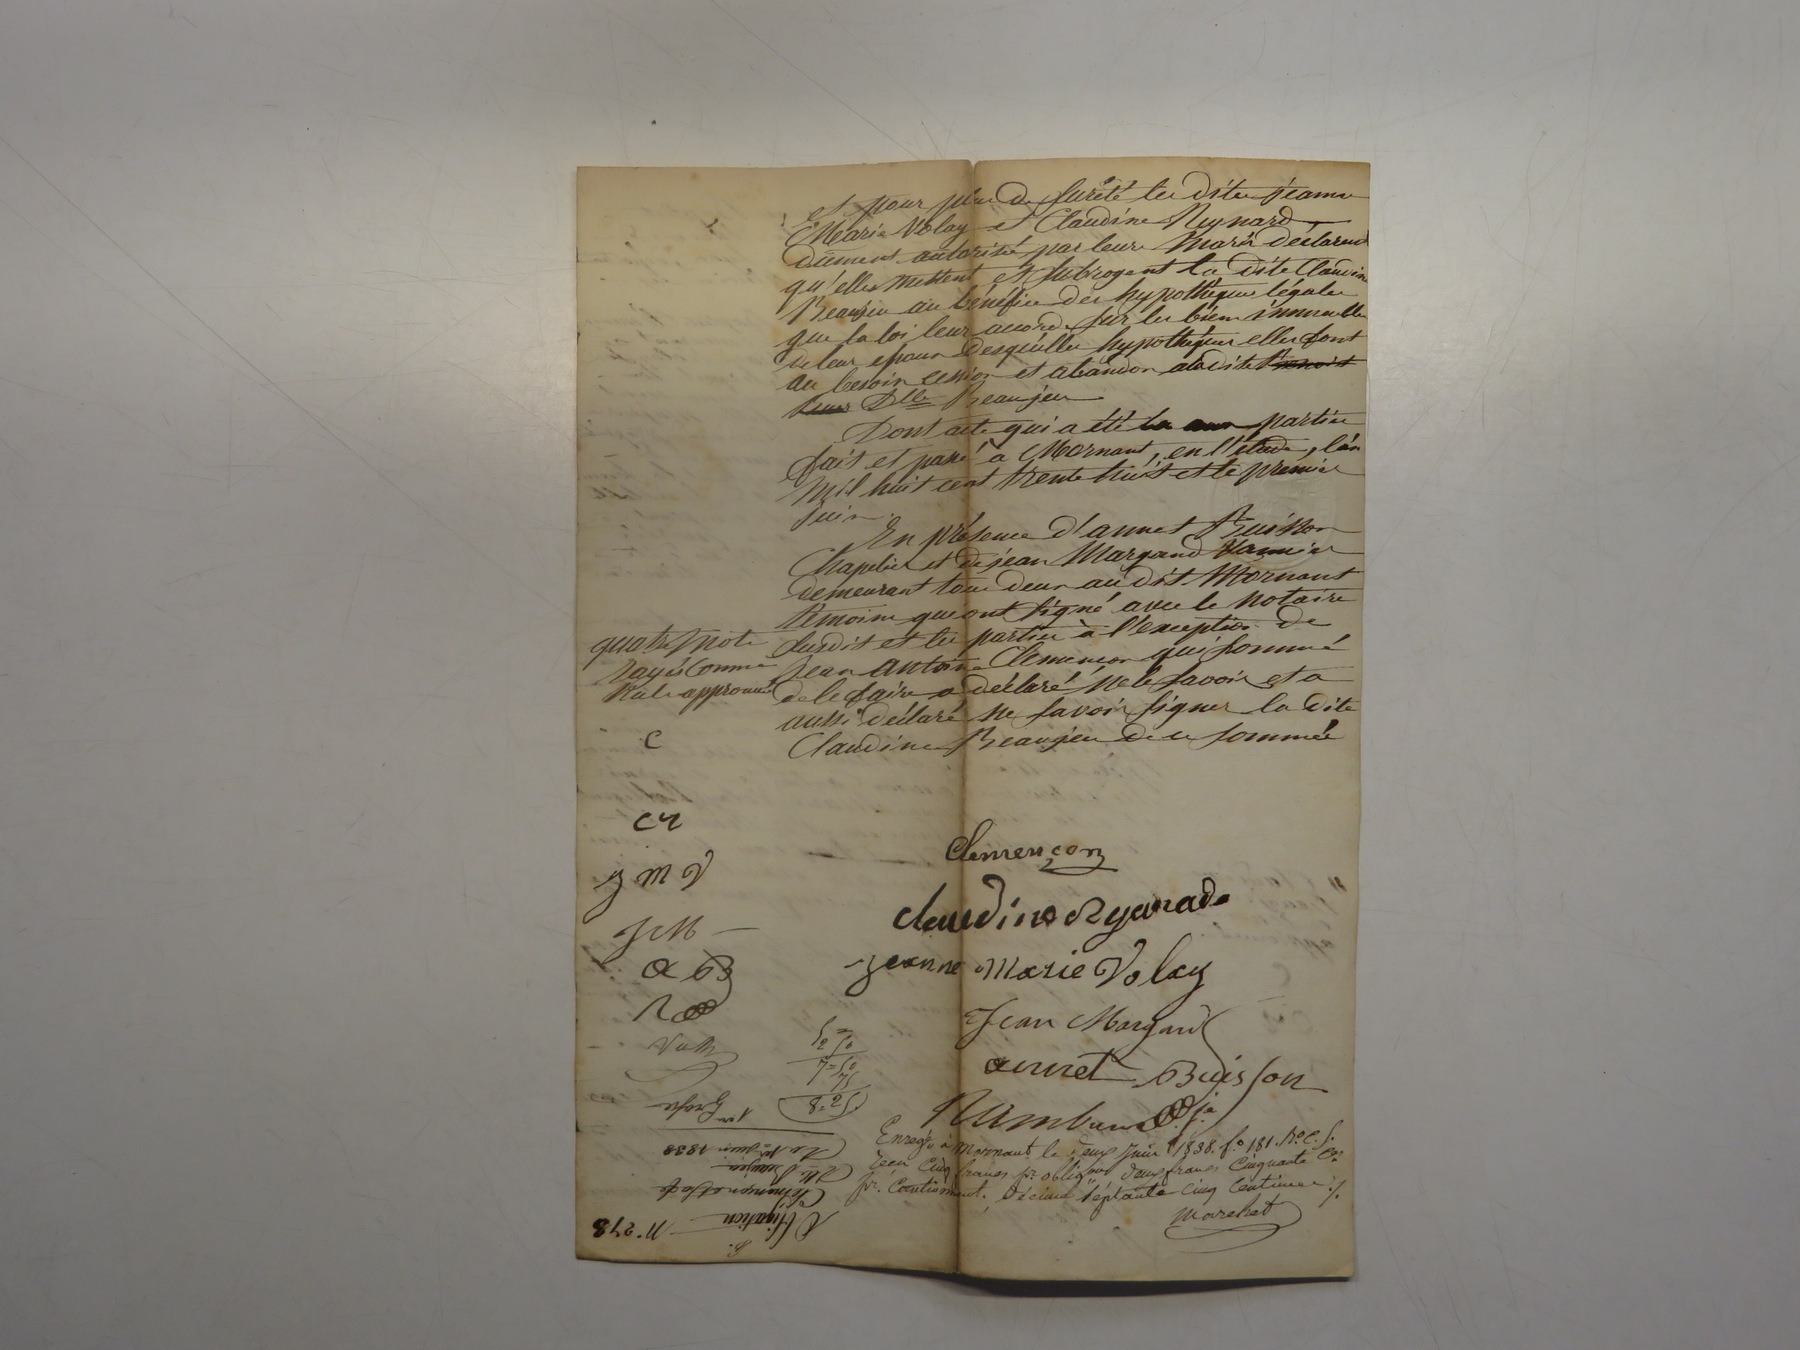 et pour plus de sureté les dites jeanne
Marie Volay et Claudine Reynard
dument autorisé par leurs Maris déclarent
qu'elles mettent et subrogent la dite Claudine
Beaujeu au bénéfice des hypothèques légales
que la loi leur accorde sur les biens immeubles
de leur epoux desquelles hypothèques elles font
au besoin cession et abandon a la dite Benoit
Dlle Beaujeu
Dont acte qui a été lu aux parties
fait et passé a Mornant, en l'étude, l'an
mil huit cent trente huit et le premier
juin.
En présence d'annet Buisson
Chapelier et de jean Margand Vannier
demeurant tous deux au dit Mornant
temoins qui ont signé avec le notaire
susdit et les parties à l'exception de
Jean antoine Clemençon qui sommé
de le faire a déclaré ne le savoir et a
aussi déclaré ne savoir signer la dite
Claudine Beaujeu de ce sommée
quatre mots
rayés comme
nuls approuvés
C
CR
J M V
JM
a B
R
Clemençon
Claudine Rynard
jeanne Marie Volay
Jean Margand
annet Buisson
Enregré à Mornant le deux Juin 1838. fo 181. Ro C. 5.
Reçu Cinq francs pr obligon deux francs Cinquante Ces
pr. Cautionnement, décime septante cinq Centimes ./.
Marchet
5=
2 50
7=50
75
8=25
N° 278
Obligation
Clemençon et Volay
Dlle Beaujeu
Du 1er Juin 1838
1re Grosse